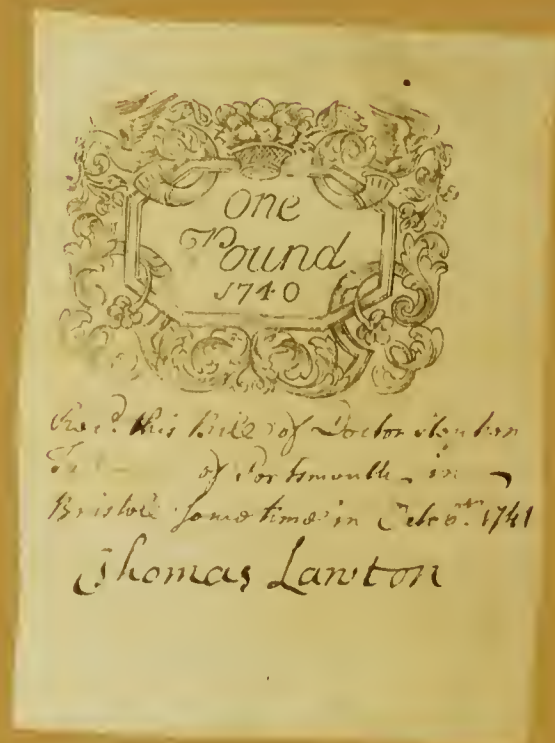 One
Pound
1740
Rec.d this Bill of Doctor
of Portsmouth in
Bristoll some time in 1741
Thomas Lawton